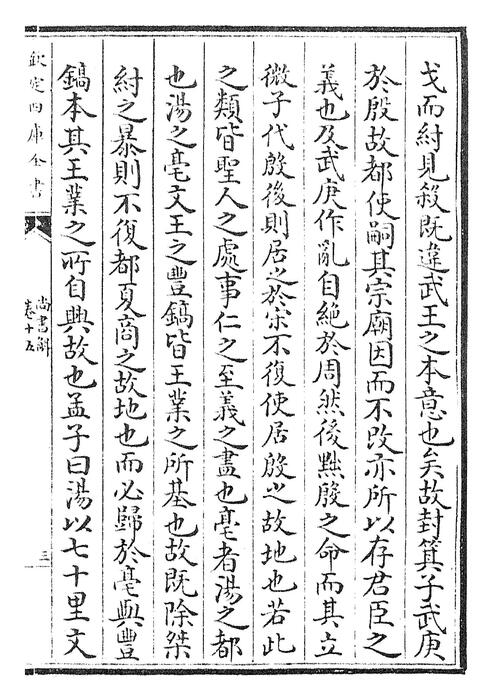 戈而紂見殺既違武王之本意也矣故封箕子武庚
於殷故都使嗣其宗廟因而不改亦所以存君臣之
義也及武庚作亂自絶於周然後黜殷之命而其立
微子代殷後則居之於宋不復使居殷之故地也若此
之類皆聖人之處事仁之至義之盡也亳者湯之都
也湯之亳文王之豐鎬皆王業之所基也故既除桀
紂之暴則不復都夏商之故地也而必歸於亳與豐
鎬本其王業之所自興故也孟子曰湯以七十里文
欽定四庫全書
尚書解
卷十五
三